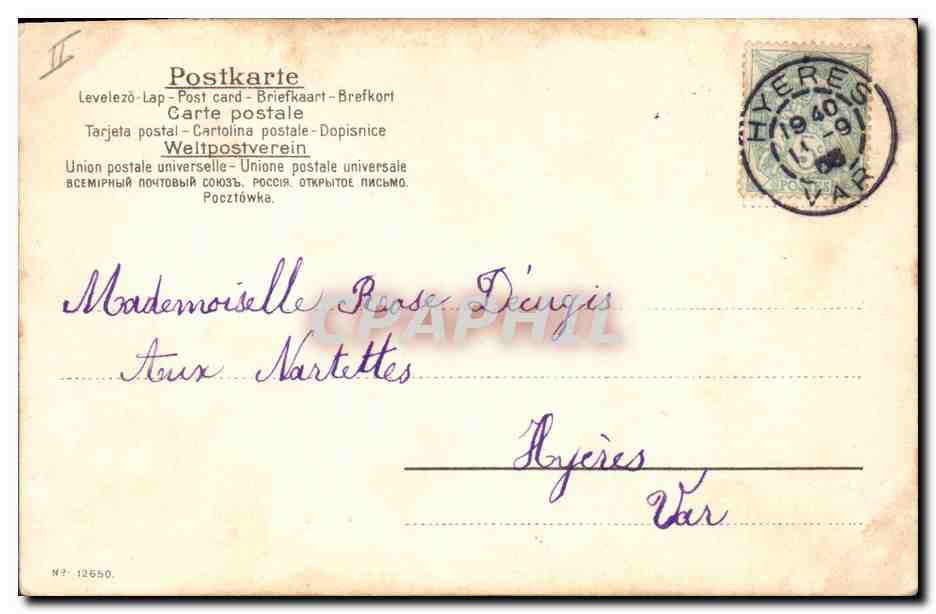 II
Postkarte
Levelezö-Lap - Post card - Briefkaart - Brefkort
Carte postale
Tarjeta postal - Cartolina postale - Dopisnice
Weltpostverein
Union postale universelle - Unione postale universale
ВСЕМIРНЫЙ ПОЧТОВЫЙ СОЮЗЪ. РОССIЯ. ОТКРЫТОЕ ПИСЬМО.
Pocztówka.
HYERES
19 40
11 -9
VAR
5c
POSTES
Mademoiselle Rose Décugis
CPAPHIL
Aux Nartettes
Hyères
Var
No. 12650.